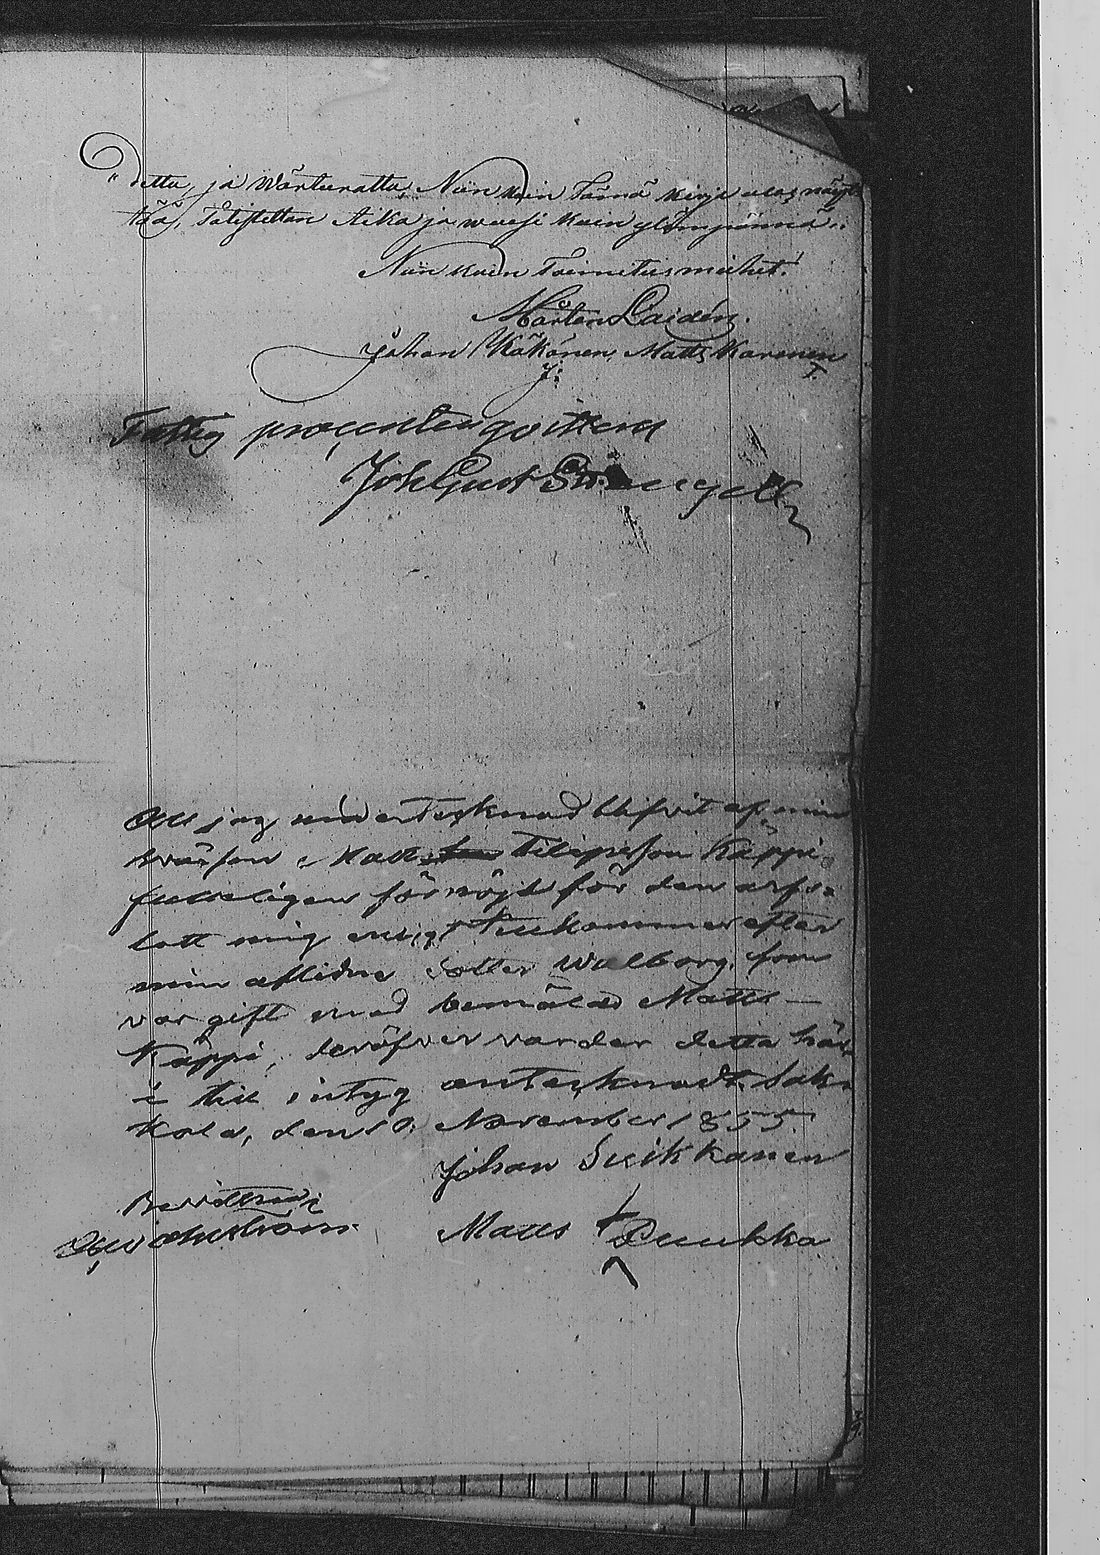 detta, ja Wärteratta, Niin kuin Tämä kirja ulos näyt-
tää, Tälistettan Aika ja wuosi kuin ylömpännä.
Niin kuin Toimitus miehet.
Mårten Laidén.
Johan Käkönen, Matts Karonen
Fattig procenten qvitteras
Joh Gust Strengell
Att jag undertecknad blifvit af min
svåson Matts Filipsson Käppi
fulleligen förnögd för den arfs-
lott mig enligt tillkommer efter
min aflidne dotter Walborg, som
var gift med bemälde Matts
Käppi, deröfver varder detta här-
i till intyg antecknadt. Sak-
kola, den 10 November 1855.
Johan Suikkanen
Bevittnar
Matts Puukka